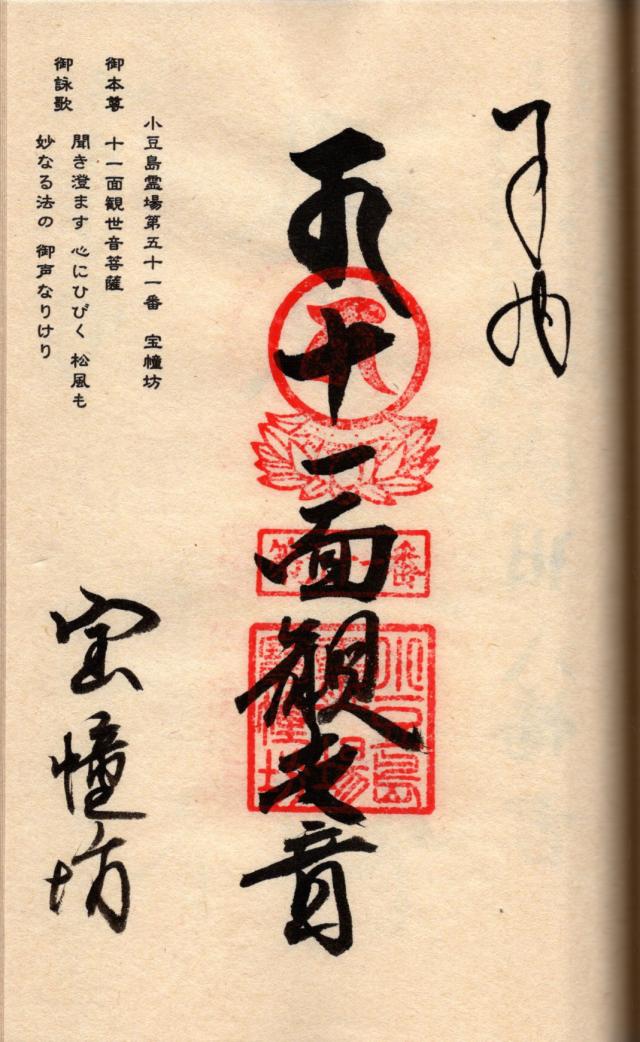 奉納
十一面観世音
小豆島霊場第五十一番 宝幢坊
御本尊 十一面観世音菩薩
御詠歌 聞き澄ます 心にひびく 松風も
妙なる法の 御声なりけり
宝幢坊